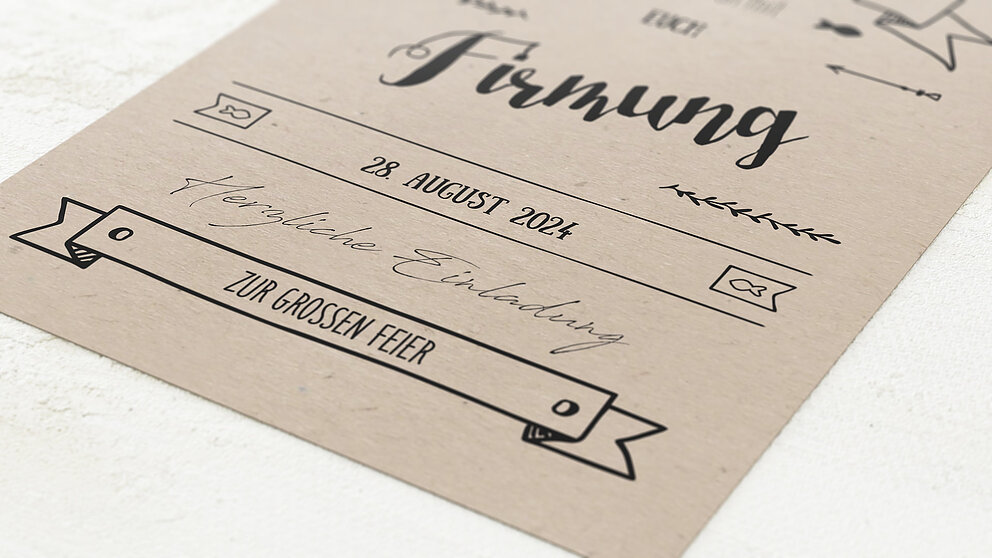 EUCH
Firmung
28. AUGUST 2024
Herzliche Einladung
ZUR GROSSEN FEIER